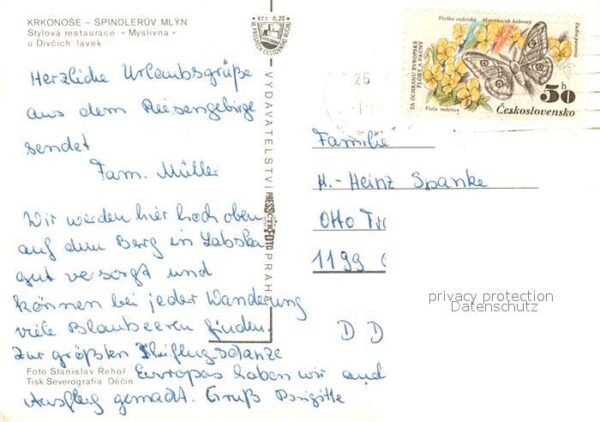 KRKONOŠE – ŠPINDLERŮV MLÝN
Stylová restaurace »Myslivna«
u Dívčích lávek
Kčs 0,20
VYDAVATELSTVÍ PRESSFOTO PRAHA
25
TA OCHRANU EVROPSKÉ
FLÓRY A FAUNY
Viola sudetica
50 h
Československo
Herzliche Urlaubsgrüße
aus dem Riesengebirge
sendet
Fam. Müller
Wir werden hier hoch oben
auf dem Berg in Labska
gut versorgt und
können bei jeder Wanderung
viele Blaubeeren finden.
Zur größten Skiflugschanze
Europas haben wir auch
Ausflug gemacht. Gruß Brigitte
Foto Stanislav Řehoř
Tisk Severografia Děčín
Familie
H.-Heinz Spanke
Otto
1199
D D
privacy protection
Datenschutz